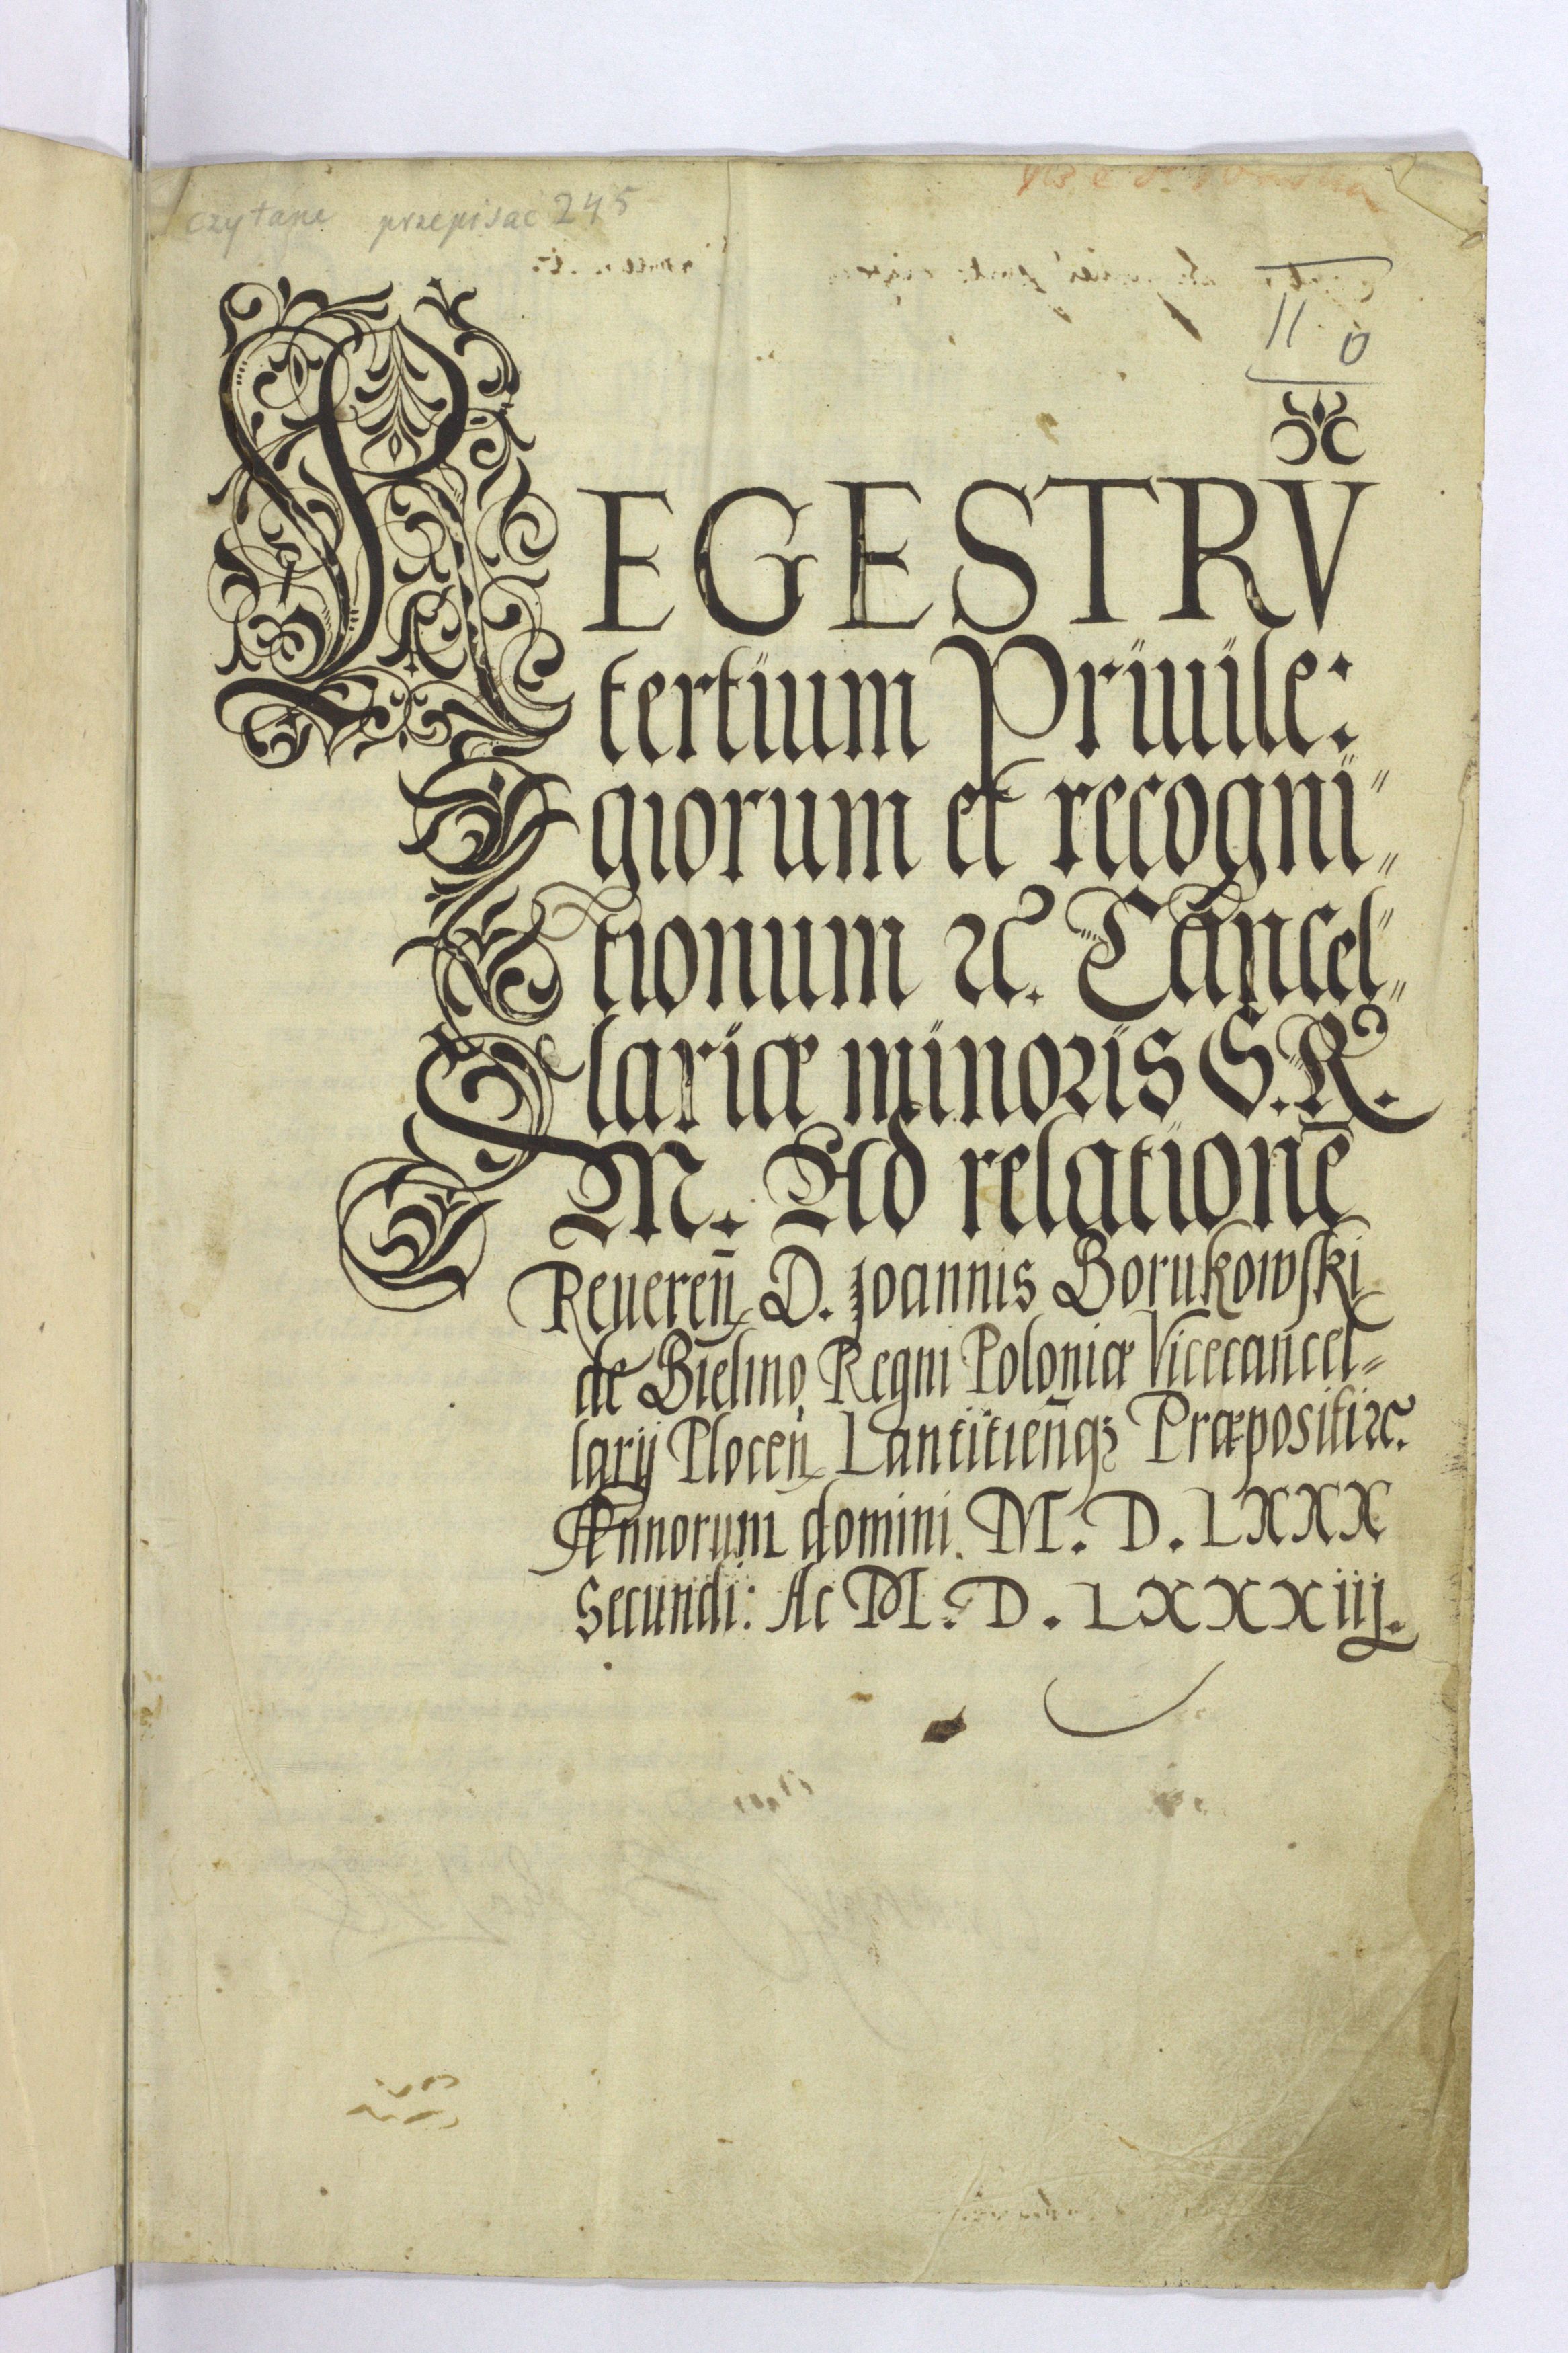 czytane przepisac 245
II 0
REGESTRṼ
tertium Priuile:
giorum et recogni=
tionum ⁊c. Cancel=
lariæ minoris S. R.
M. Ad relationē
Reueren̄ D. Joannis Borukowski
de Bielino, Regni Poloniæ Vicecancel=
larij Plocen̄ Lantitien̄qꝫ Præpositi ⁊c.
Annorum domini. M. D. LXXX
Secundi: Ac M. D. LXXXiij.